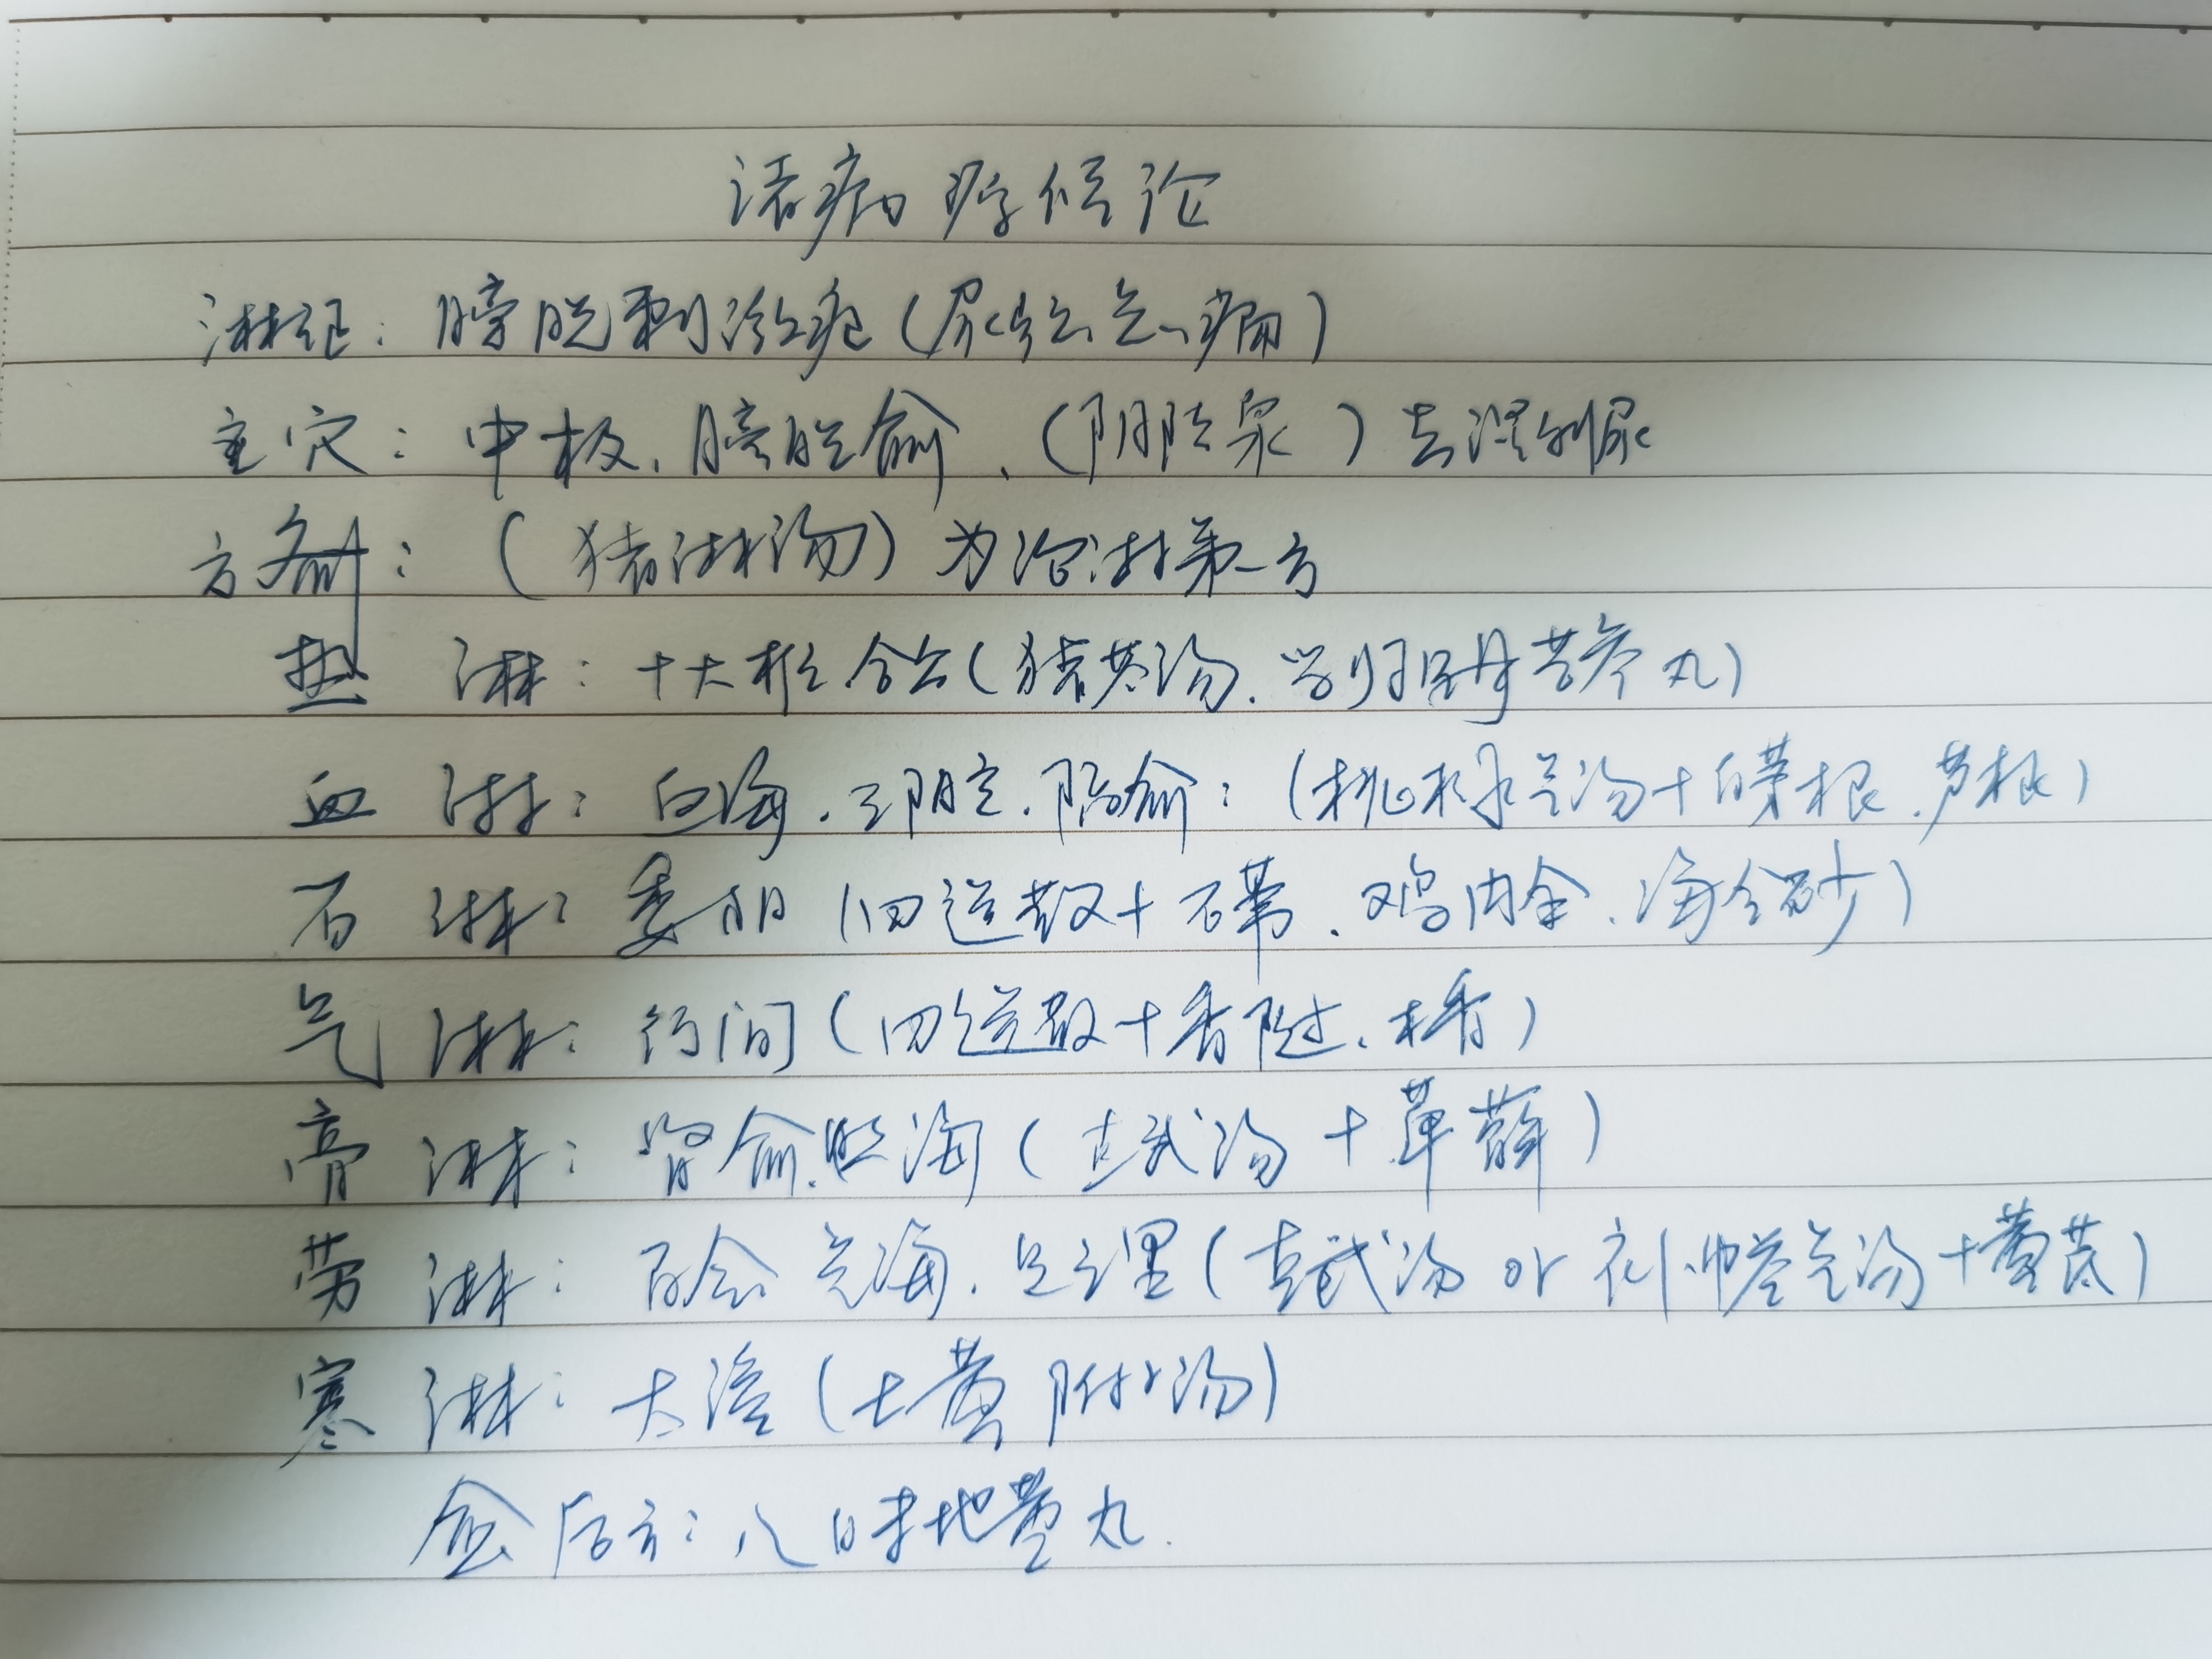 诸病源候论
淋证：膀胱刺激症（尿频、急、痛）
主穴：中极、膀胱俞、（阴陵泉）去湿利尿
方剂：（猪淋汤）为治淋第一方
热 淋：十大枢合谷（猪苓汤、当归贝母苦参丸）
血 淋：血海、三阴交、膈俞：（桃核承气汤+白茅根、芦根）
石 淋：委阳（四逆散+石苇、鸡内金、海金砂）
气 淋：行间（四逆散+香附、木香）
膏 淋：肾俞、照海（真武汤+萆薢）
劳 淋：百会 气海、足三里（真武汤 or 补中益气汤+黄芪）
寒 淋：大
愈后方：八味地黄丸.